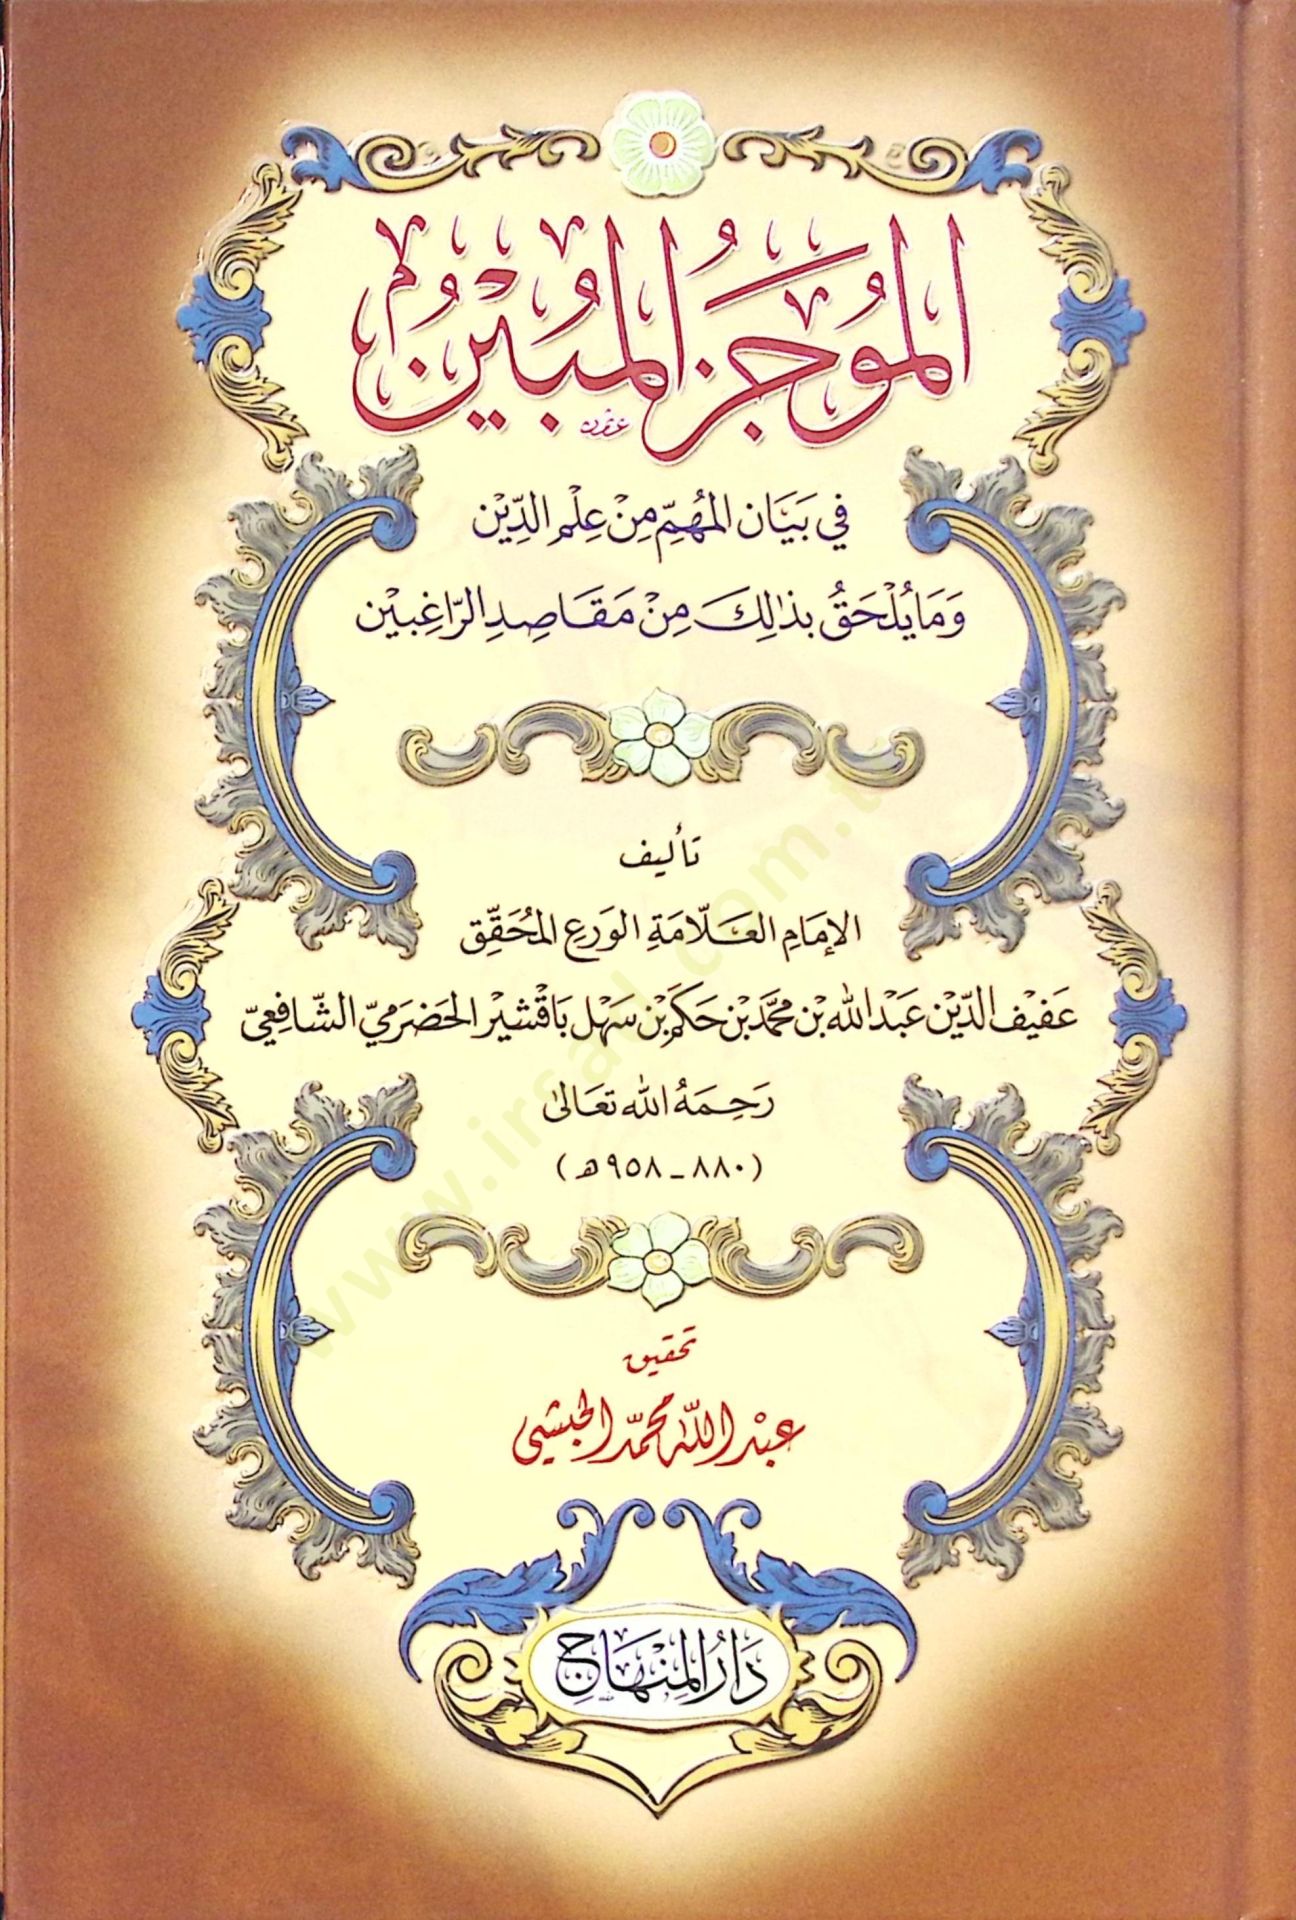 الموجز المبين
في بيان المهم من علم الدين
وما يلحق بذلك من مقاصد الراغبين
تأليف
الإمام العلامة الورع المحقق
عفيف الدين عبد الله بن محمد بن حكم بن سهل باقشير الحضرمي الشافعي
رحمه الله تعالى
(٨٨٠ - ٩٥٨ هـ)
تحقيق
عبد الله محمد الحبشي
دار المنهاج